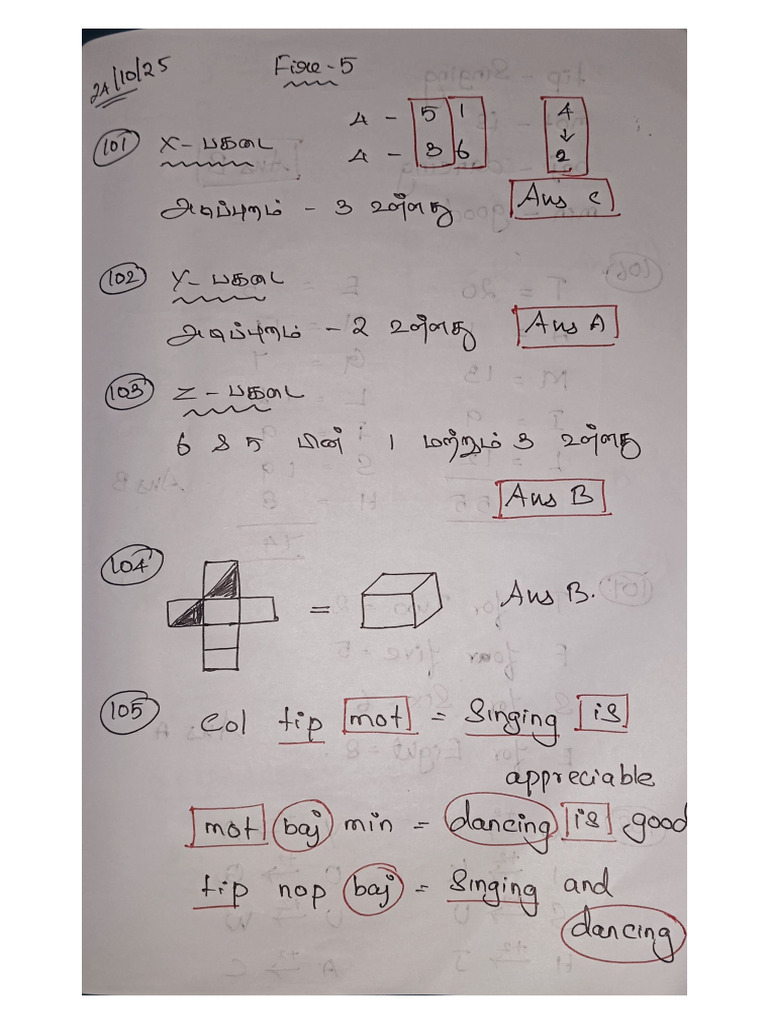 24/10/25
Fire-5
4 - 5 1 4
↓
101 X- பகடை 4 - 3 6 2
அடிப்புறம் - 3 உள்ளது Ans C
102 Y- பகடை
அடிப்புறம் - 2 உள்ளது Ans A
103 Z - பகடை
6 & 5 பின் 1 மற்றும் 3 உள்ளது
Ans B
104 = Ans B.
105 Col tip mot = Singing is
appreciable
mot baj min = dancing is good
tip nop baj = Singing and
dancing